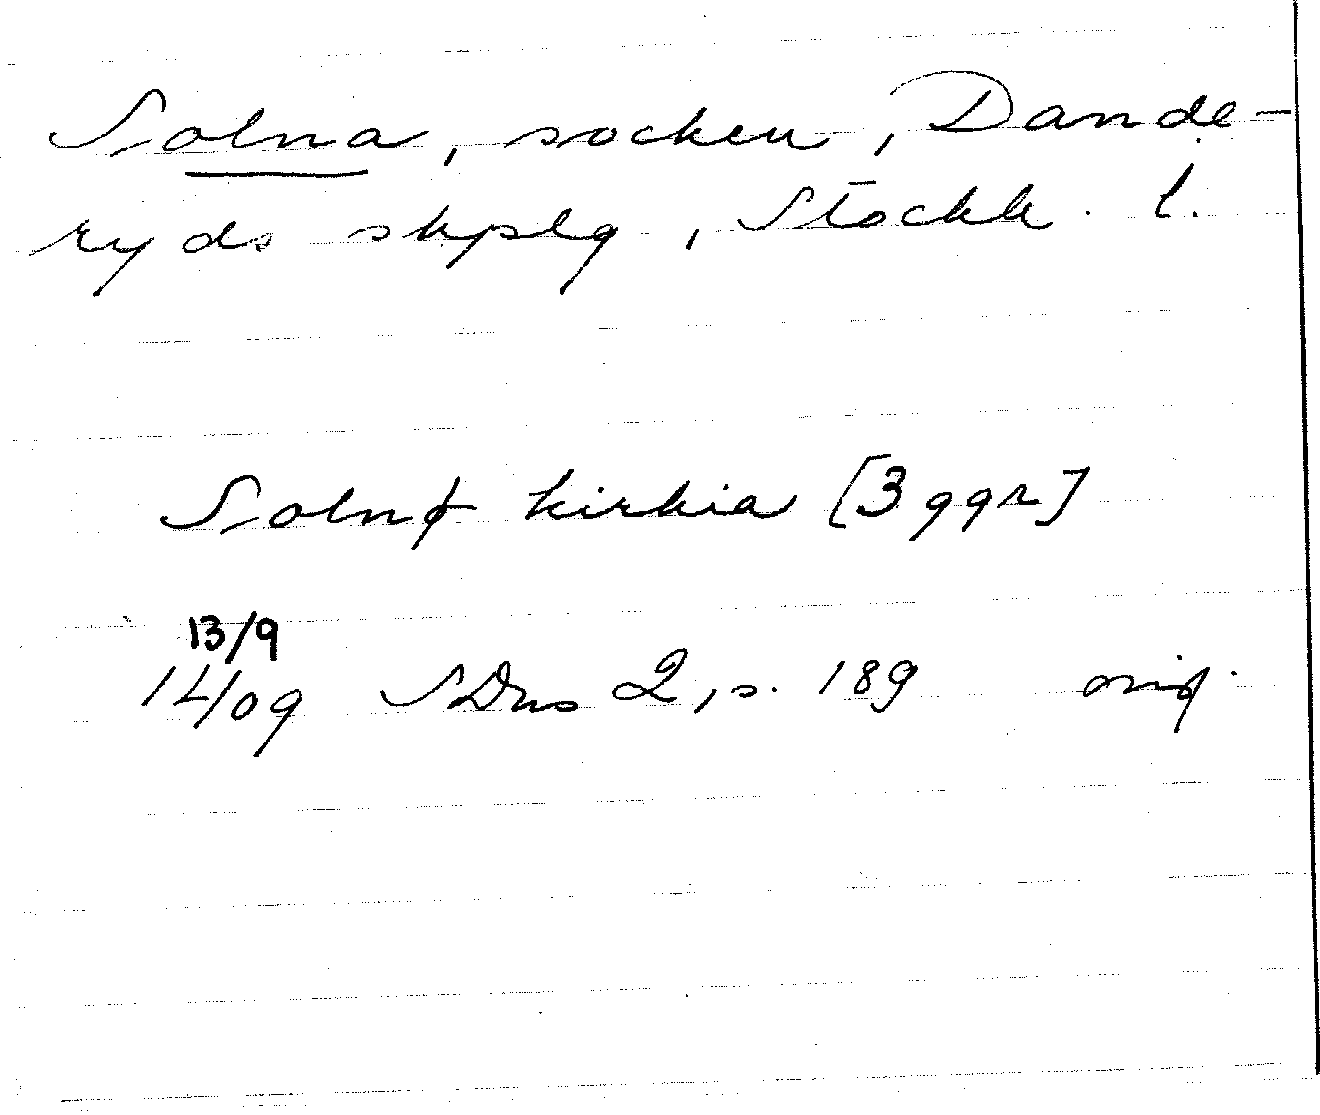 Solna, socken, Dande-
ryds skpslg, Stockh. l.
Solnø kirkia [3 ggr]
13/9
14/09 SDns 2, s. 189 orig.